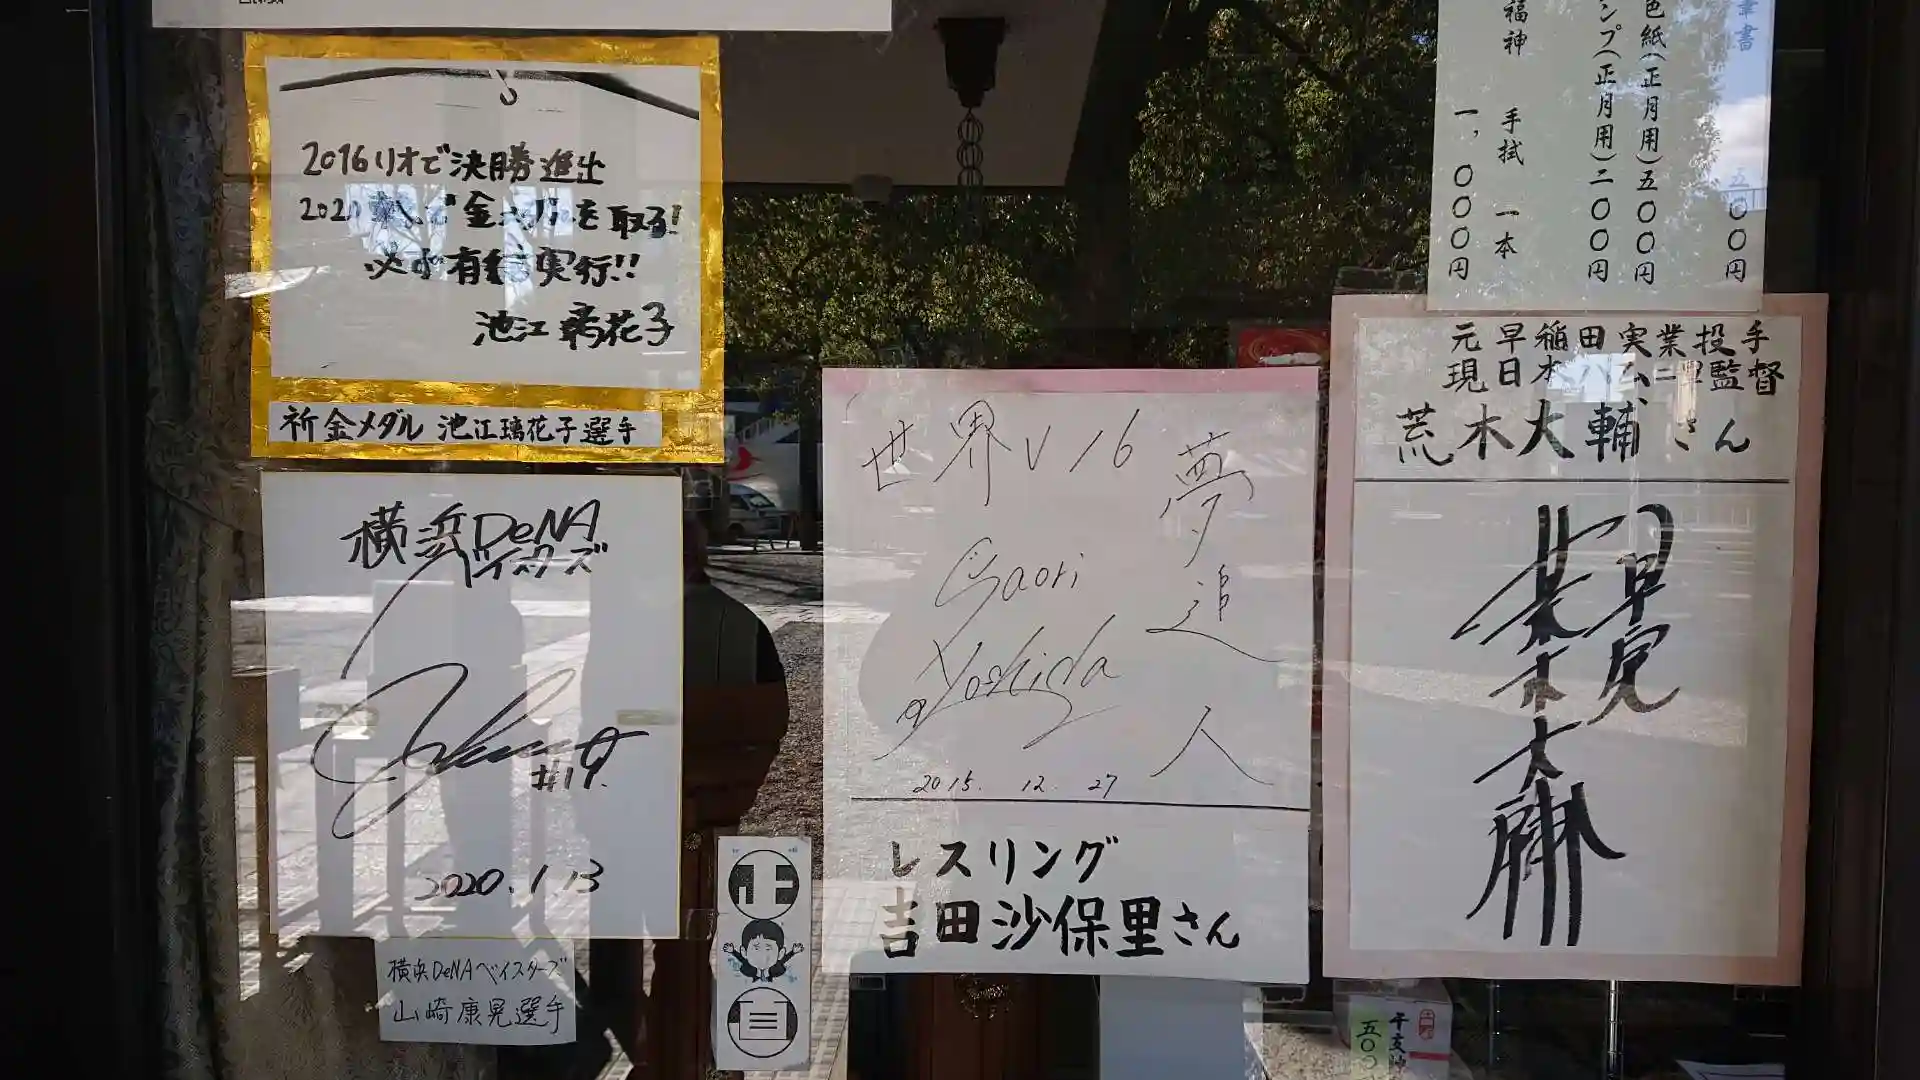 2016リオで決勝進出
で金メダルを取る!
必ず有言実行!!
池江璃花子
祈金メダル 池江璃花子選手
横浜DeNA
ベイスターズ
#19.
2020.1.13
横浜DeNAベイスターズ
山﨑康晃選手
世界V16
夢追人
Saori
Yoshida
2015. 12. 27
レスリング
吉田沙保里さん
福神 手拭 一本
一,〇〇〇円
色紙(正月用)五〇〇円
ンプ(正月用)二〇〇円
五〇〇円
元早稲田実業投手
現日本ハム二軍監督
荒木大輔さん
早実
荒木大輔
干支
五〇